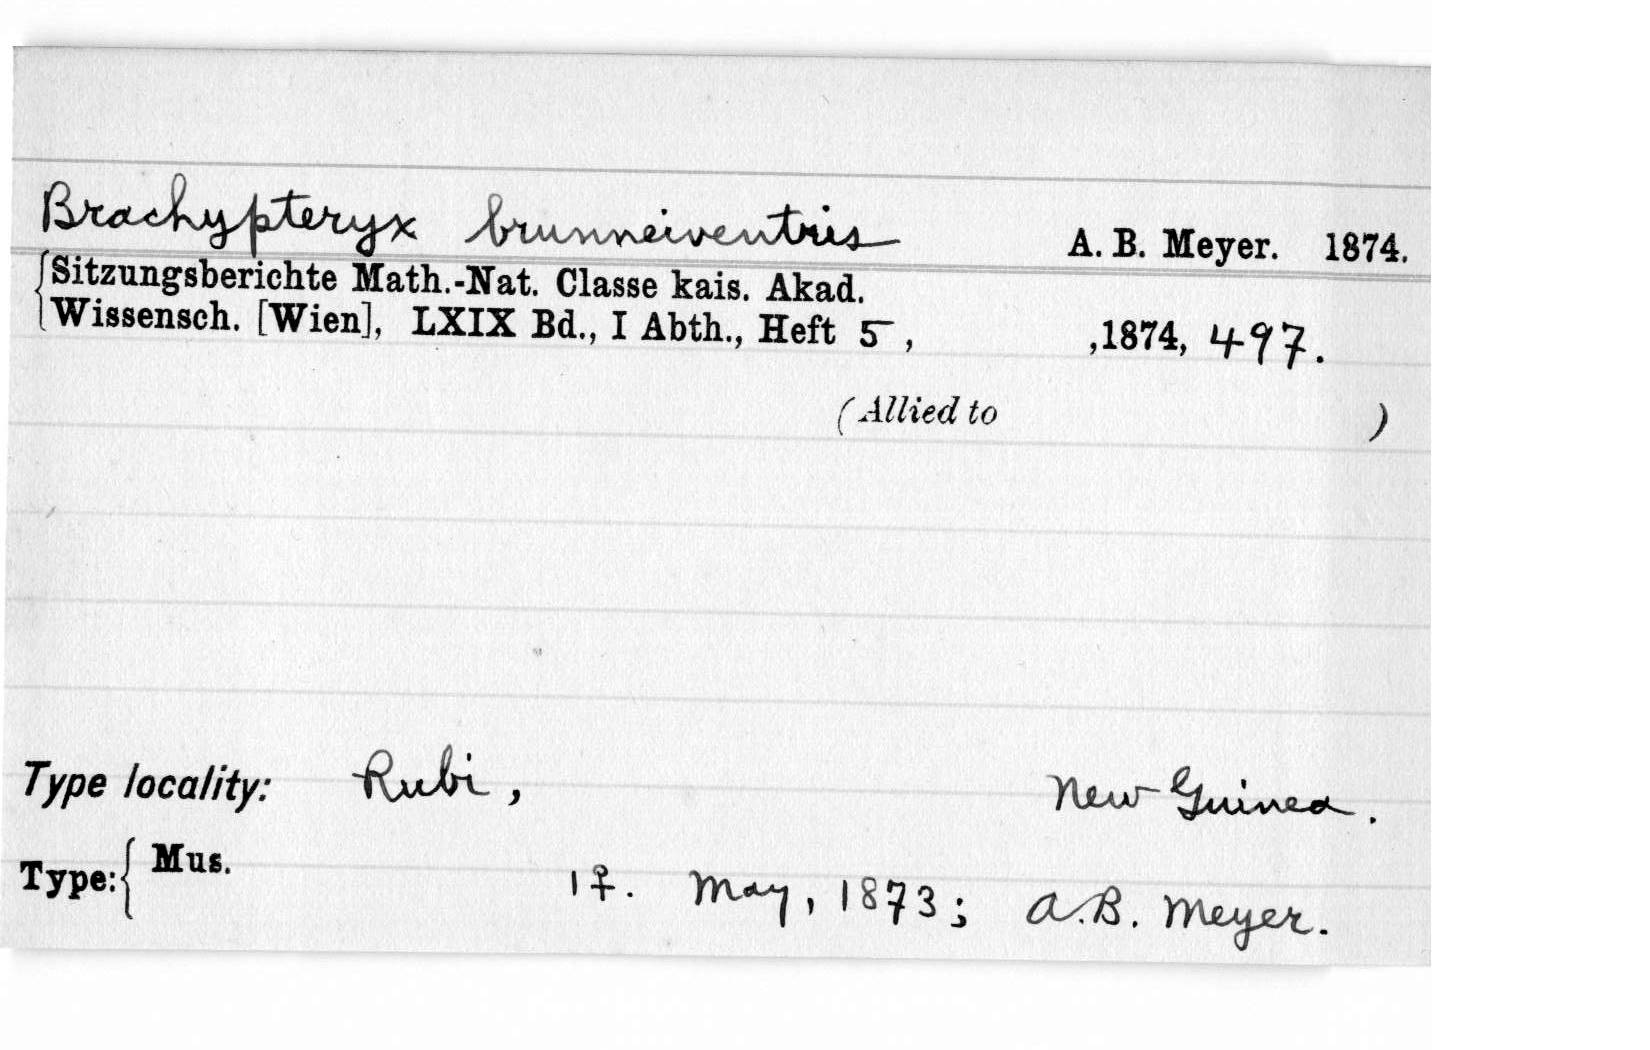 Brachypteryx brunneiventris A. B. Meyer. 1874.
Sitzungsberichte Math.-Nat. Classe kais. Akad.
Wissensch. [Wien], LXIX Bd., I Abth., Heft 5, ,1874, 497.
(Allied to )
Type locality: Rubi, New Guinea.
Type: { Mus. 1♀. May, 1873; A.B. Meyer.